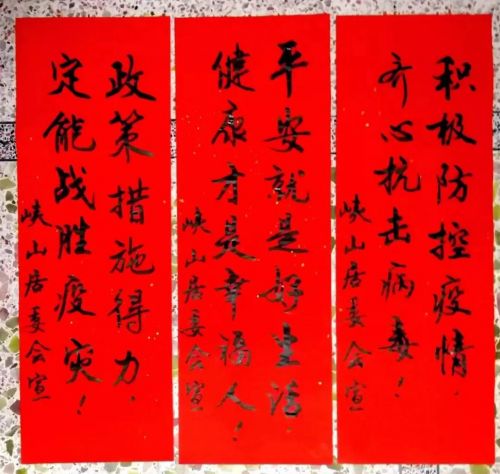 积极防控疫情，
齐心抗击病毒！
峡山居委会宣
平安就是好生活，
健康才是幸福人！
峡山居委会宣
政策措施得力，
定能战胜疫灾！
峡山居委会宣